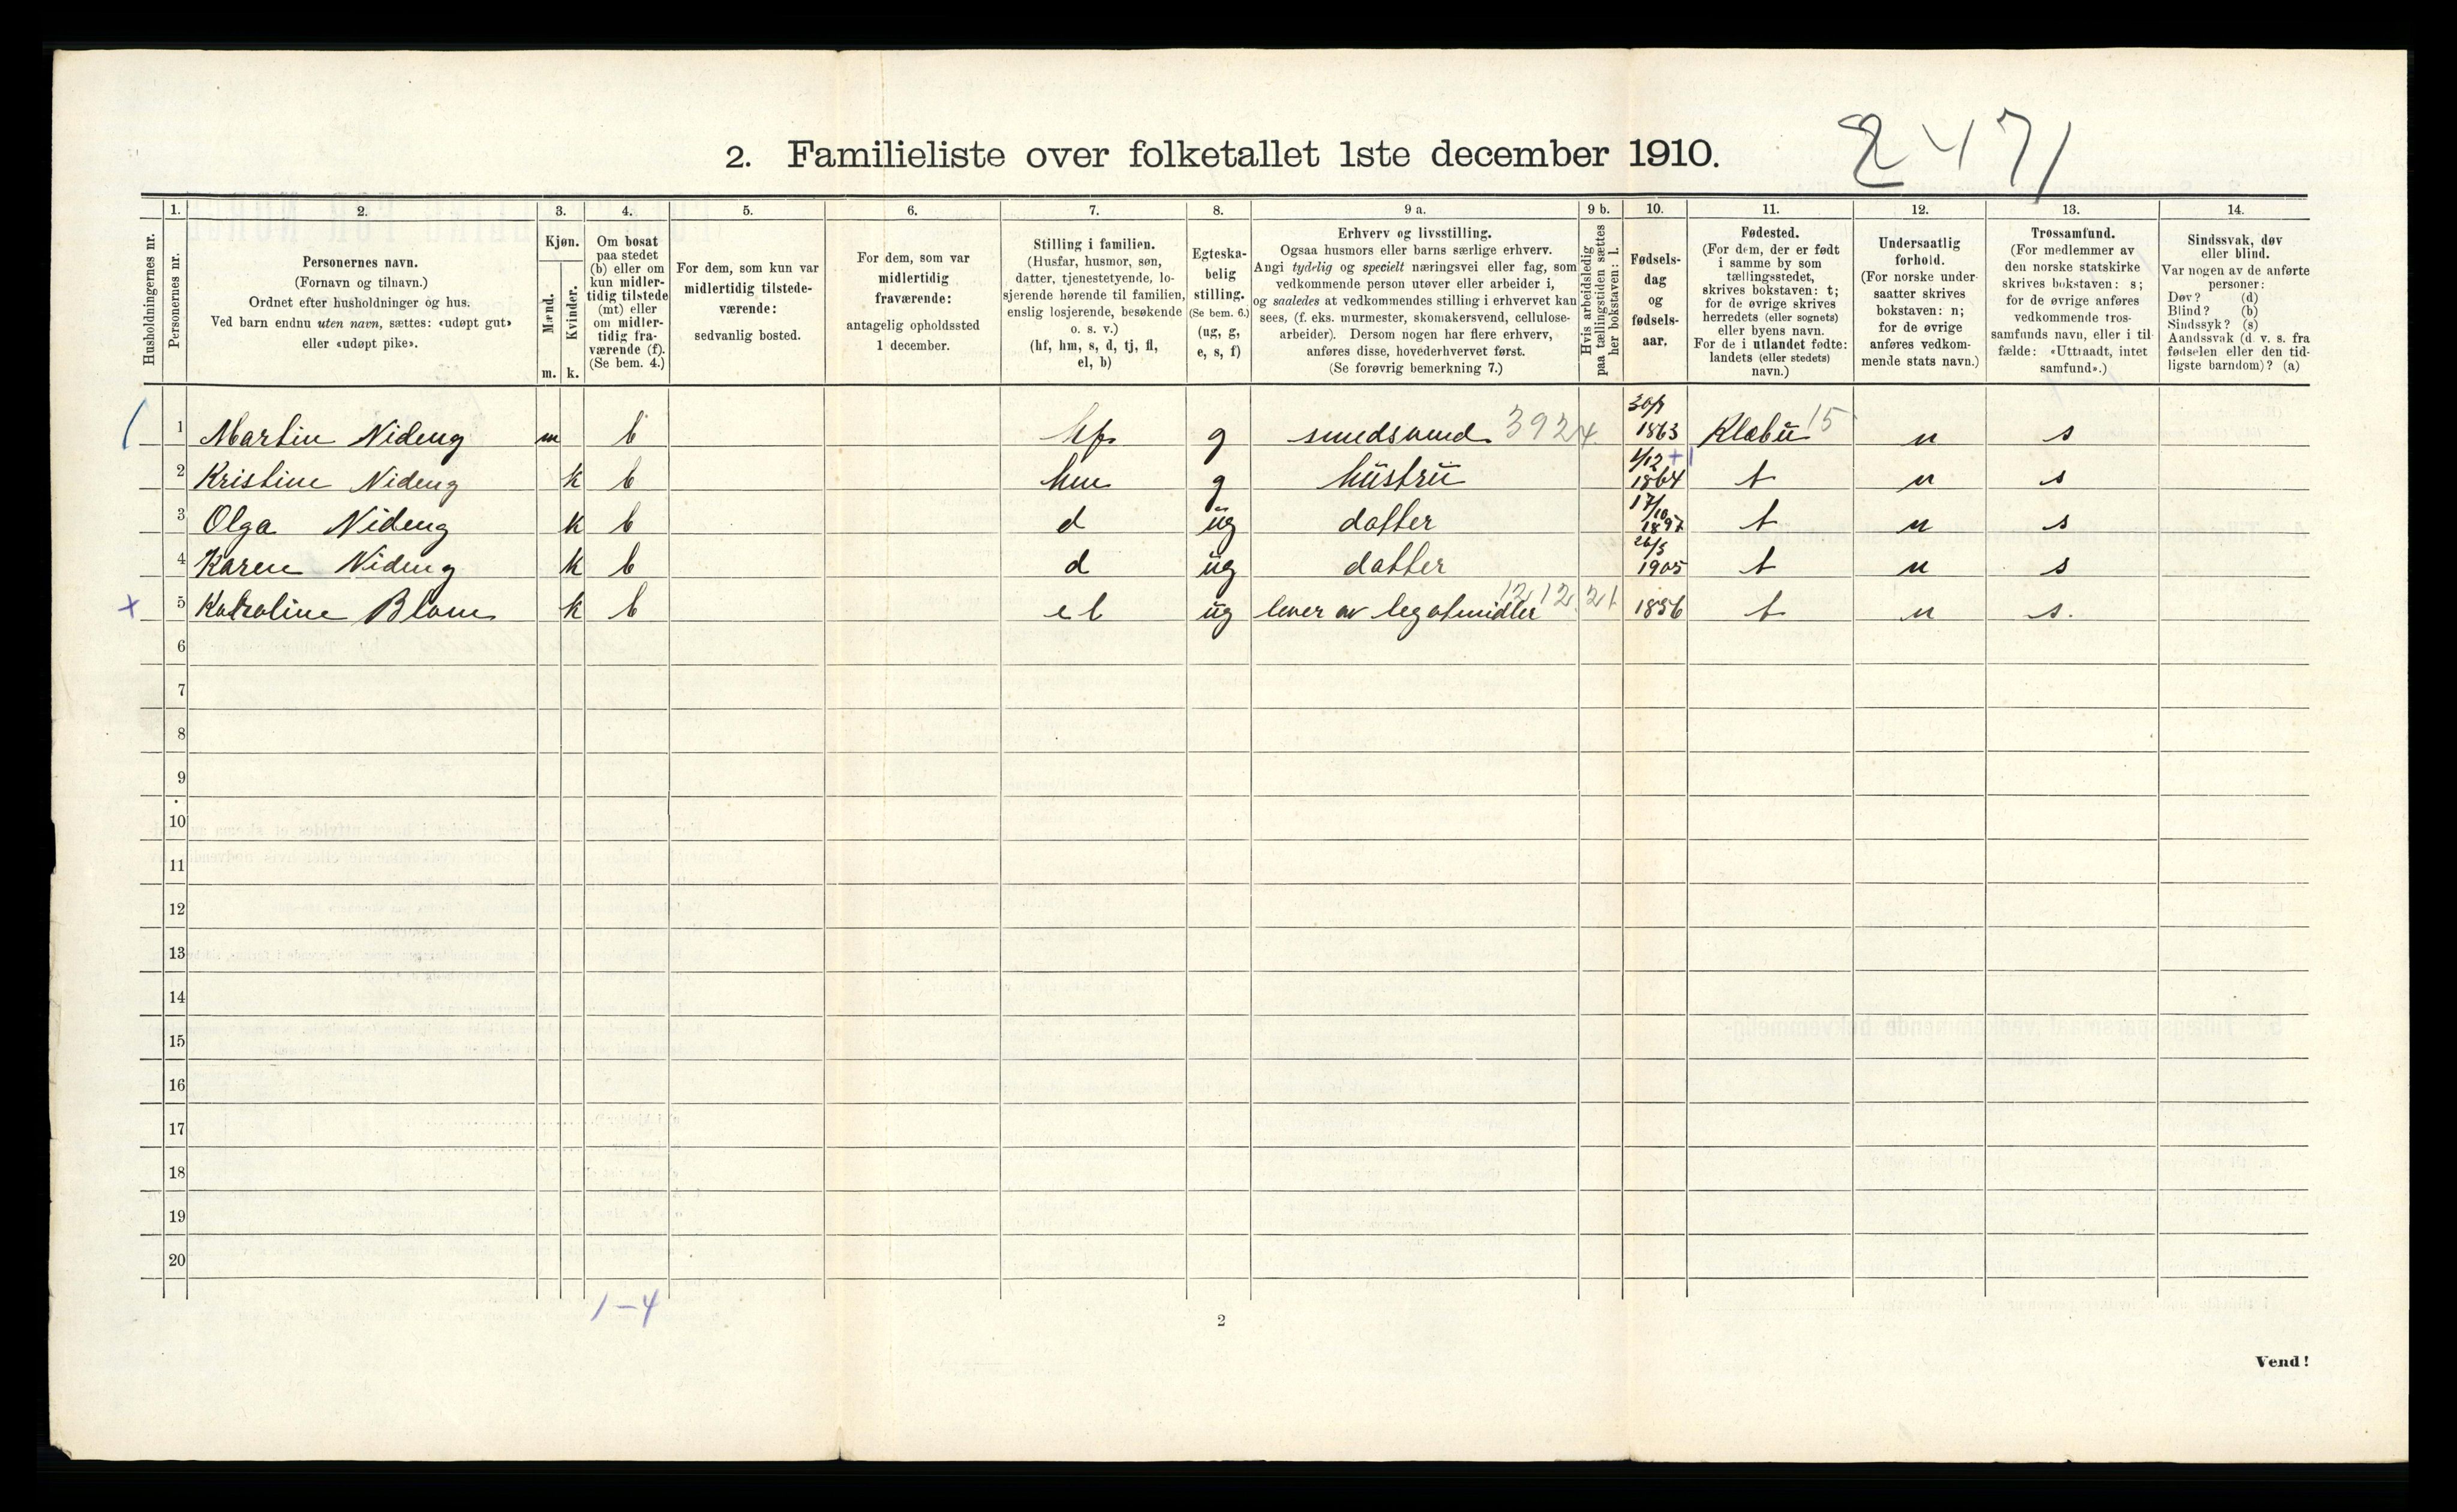 2471
2. Familieliste over folketallet 1ste december 1910.
Husholdningernes nr.
1. Personernes nr.
2. Personernes navn.
(Fornavn og tilnavn.)
Ordnet efter husholdninger og hus.
Ved barn endnu uten navn, sættes: «udøpt gut»
eller «udøpt pike».
3. Kjøn.
Mænd. m.
Kvinder. k.
4. Om bosat
paa stedet
(b) eller om
kun midler-
tidig tilstede
(mt) eller
om midler-
tidig fra-
værende (f).
(Se bem. 4.)
5. For dem, som kun var
midlertidig tilstede-
værende:
sedvanlig bosted.
6. For dem, som var
midlertidig
fraværende:
antagelig opholdssted
1 december.
7. Stilling i familien.
(Husfar, husmor, søn,
datter, tjenestetyende, lo-
sjerende hørende til familien,
enslig losjerende, besøkende
o. s. v.)
(hf, hm, s, d, tj, fl,
el, b)
8. Egteska-
belig
stilling.
(Se bem. 6.)
(ug, g,
e, s, f)
9 a. Erhverv og livsstilling.
Ogsaa husmors eller barns særlige erhverv.
Angi tydelig og specielt næringsvei eller fag, som
vedkommende person utøver eller arbeider i,
og saaledes at vedkommendes stilling i erhvervet kan
sees, (f. eks. murmester, skomakersvend, cellulose-
arbeider). Dersom nogen har flere erhverv,
anføres disse, hovederhvervet først.
(Se forøvrig bemerkning 7.)
9 b. Hvis arbeidsledig
paa tællingstiden sættes
her bokstaven: l.
10. Fødsels-
dag
og
fødsels-
aar.
11. Fødested.
(For dem, der er født
i samme by som
tællingsstedet,
skrives bokstaven: t;
for de øvrige skrives
herredets (eller sognets)
eller byens navn.
For de i utlandet fødte:
landets (eller stedets)
navn.)
12. Undersaatlig
forhold.
(For norske under-
saatter skrives
bokstaven: n;
for de øvrige
anføres vedkom-
mende stats navn.)
13. Trossamfund.
(For medlemmer av
den norske statskirke
skrives bokstaven: s;
for de øvrige anføres
vedkommende tros-
samfunds navn, eller i til-
fælde: «Uttraadt, intet
samfund».)
14. Sindssvak, døv
eller blind.
Var nogen av de anførte
personer:
Døv? (d)
Blind? (b)
Sindssyk? (s)
Aandssvak (d. v. s. fra
fødselen eller den tid-
ligste barndom)? (a)
1 Martin Nideng m b hf g smedsvend 3924 1863 Klæbu 15 n s
2 Kristine Nideng k b hm g hustru 1/12 1864 t n s
3 Olga Nideng k b d ug datter 17/10 1897 t n s
4 Karen Nideng k b d ug datter 26/5 1905 t n s
x 5 Katraline Blom k b el ug lever av legatmidler 12 12 21 1856 t n s.
6
7
8
9
10
11
12
13
14
15
16
17
18
19
20
1-4
2
Vend!